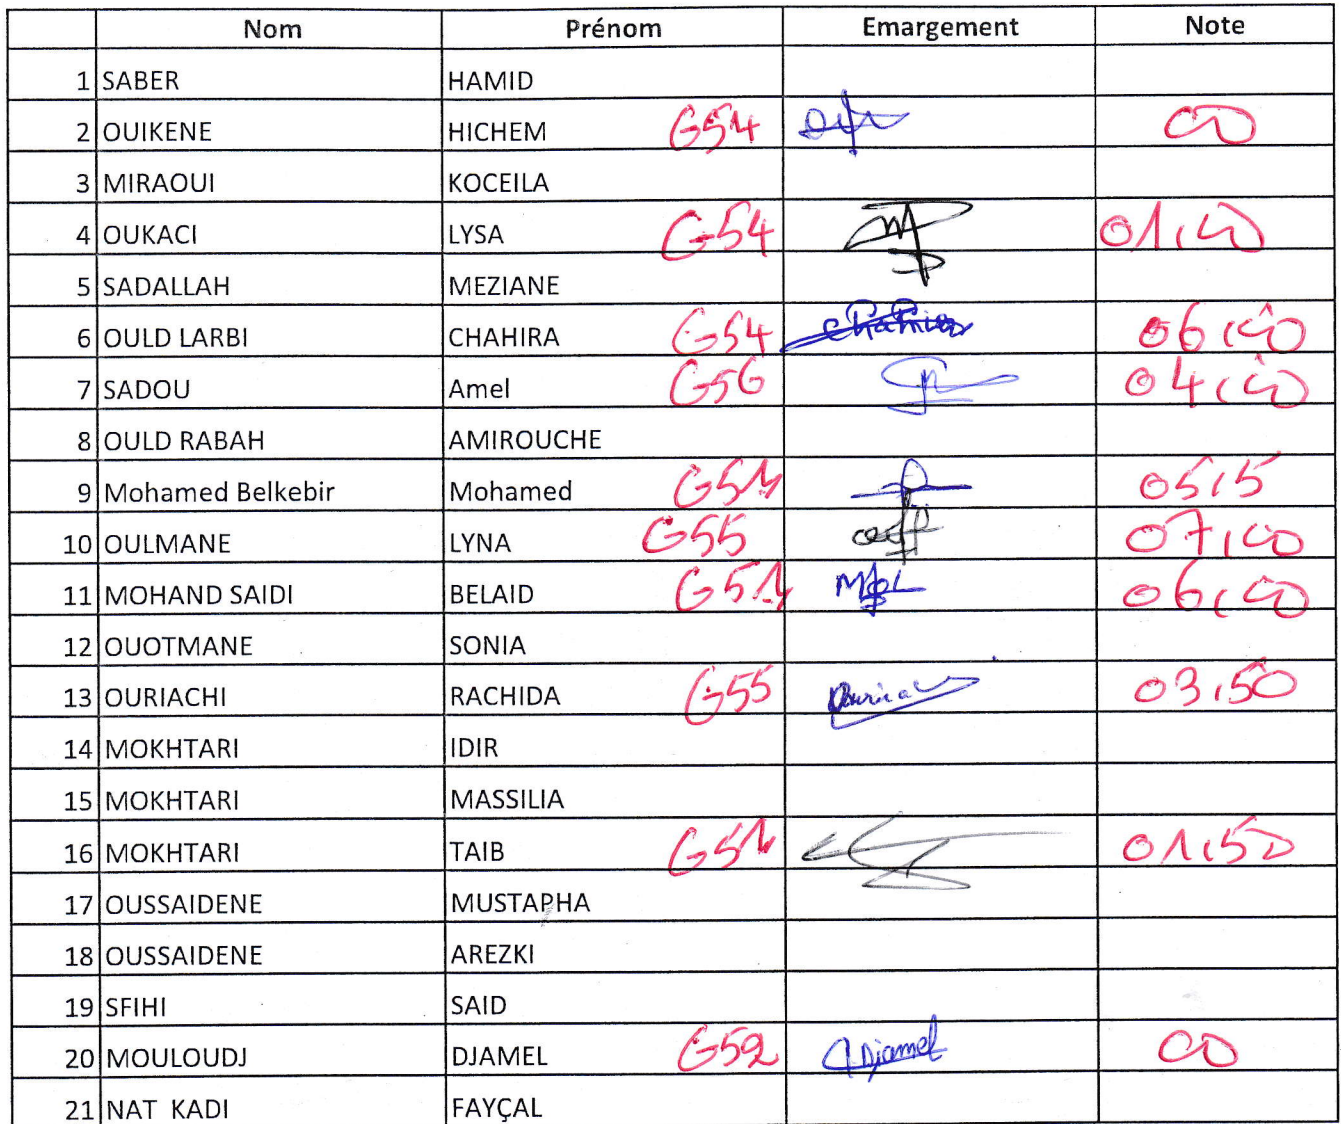 Nom Prénom Emargement Note
1 SABER HAMID
2 OUIKENE HICHEM G54 00
3 MIRAOUI KOCEILA
4 OUKACI LYSA G54 01,00
5 SADALLAH MEZIANE
6 OULD LARBI CHAHIRA G54 06,00
7 SADOU Amel G56 04,00
8 OULD RABAH AMIROUCHE
9 Mohamed Belkebir Mohamed 05,5
10 OULMANE LYNA G55 07,00
11 MOHAND SAIDI BELAID G51 06,00
12 OUOTMANE SONIA
13 OURIACHI RACHIDA G55 03,50
14 MOKHTARI IDIR
15 MOKHTARI MASSILIA
16 MOKHTARI TAIB G51 01,50
17 OUSSAIDENE MUSTAPHA
18 OUSSAIDENE AREZKI
19 SFIHI SAID
20 MOULOUDJ DJAMEL G52 Djamel 00
21 NAT KADI FAYÇAL